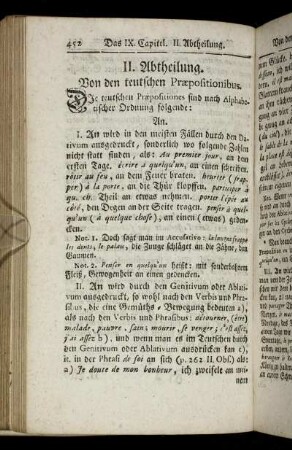 452 Das IX. Capitel. II. Abtheilung.
II. Abtheilung.
Von den teutschen Præpositionibus.
Die teutschen Præpositiones sind nach Alphabe-
tischer Ordnung folgende:
An.
I. An wird in den meisten Fällen durch den Da-
tivum ausgedruckt, sonderlich wo folgende Zahlen
nicht statt finden, als: Au premier jour, an den
ersten Tage. écrire à quelqu'un, an einen schreiben.
rôtir au feu, an dem Feuer braten. heurter (frap-
per) à la porte, an die Thür klopffen. participer à
qu. ch. Theil an etwas nehmen. porter l'épée au
côté, den Degen an der Seite tragen. penser à quel-
qu'un (à quelque chose), an einen (etwas) geden-
cken.
Not. 1. Doch sagt man im Accusativo: la langue frappe
les dents, le palais, die Zunge schläget an die Zähne, den
Gaumen.
Not. 2. Penser en quelqu'un heißt: mit sonderlichem
Fleiß, Gewogenheit an einen gedencken.
II. An wird durch den Genitivum oder Ablativum
ausgedruckt, so wohl nach den Verbis und Phra-
sibus, die eine Gemüths-Bewegung bedeuten a),
als nach den Verbis und Phrasibus: détourner, (être)
malade, pauvre, sain; mourir, se venger; c'est assez,
j'ai assez b), und wenn man es im Teutschen durch
den Genitivum oder Ablativum ausdrücken kan c),
it. in der Phrasi de soi an sich (p. 262 II. Obs.) als:
a) Je doute de mon bonheur, ich zweifele an mei-
nem